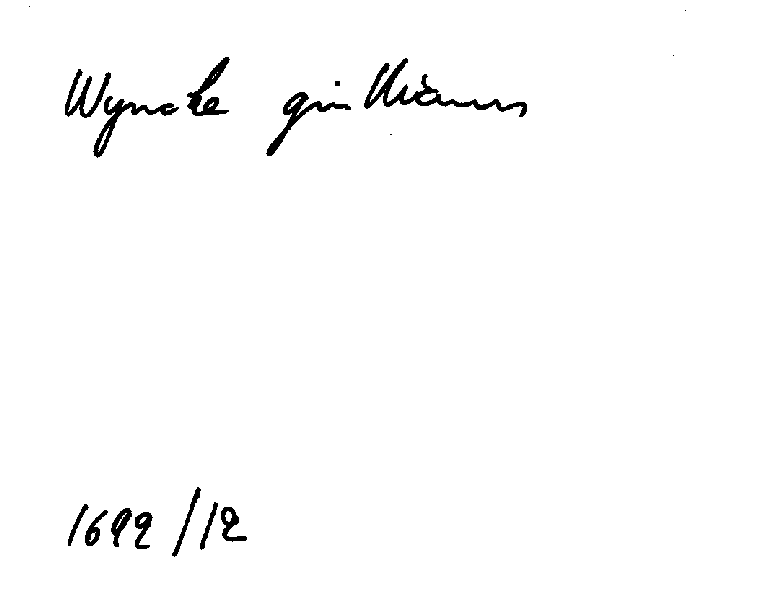 Wyncke guillianus
1692 / 12